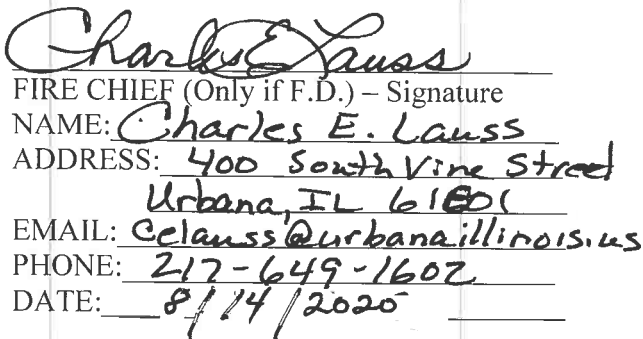 Charles E Lauss
FIRE CHIEF (Only if F.D.) – Signature
NAME: Charles E. Lauss
ADDRESS: 400 South Vine Street
Urbana, IL 61801
EMAIL: Celauss@urbanaillinois.us
PHONE: 217-649-1602
DATE: 8/14/2020